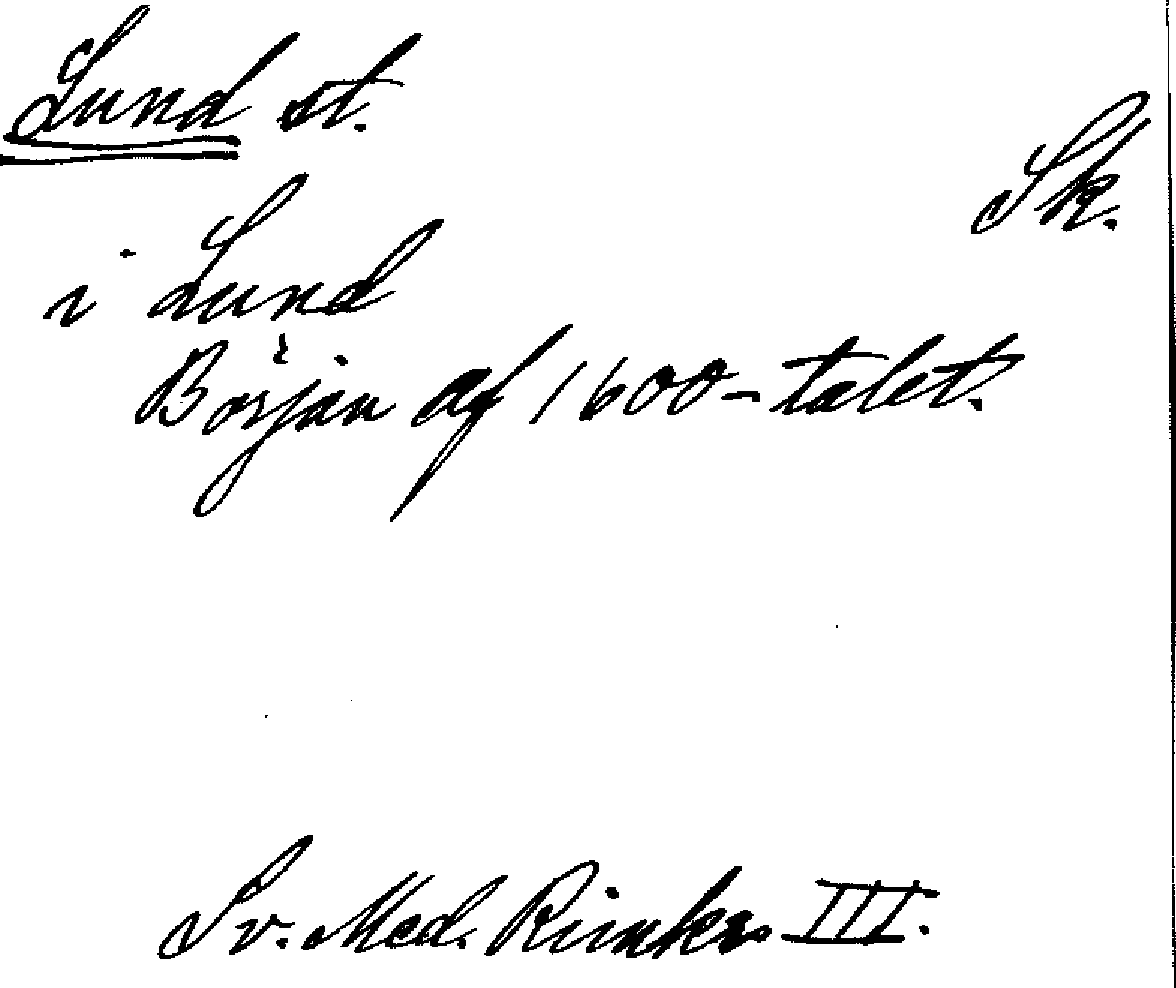 Lund st.
Sk.
i Lund
Början af 1600-talet.
Sv. Med. Rimkr. III.